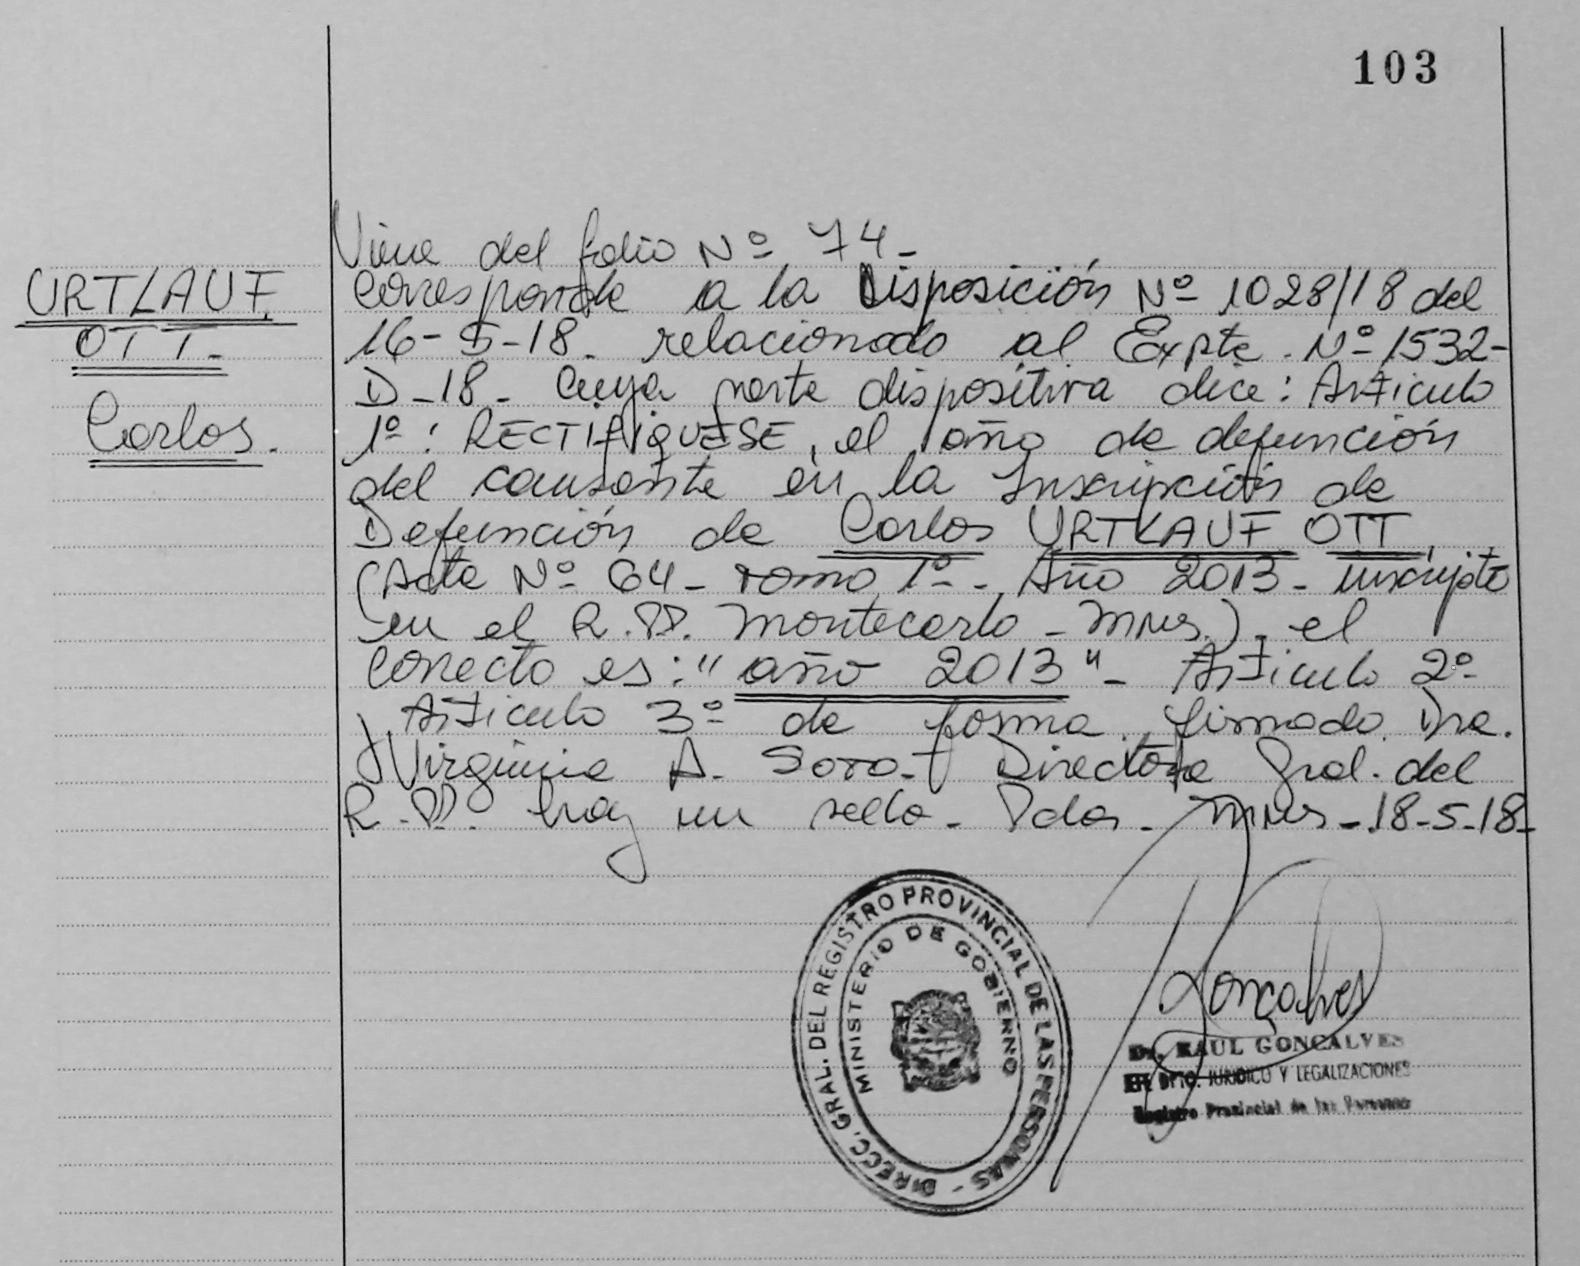 103
Viene del folio Nº 74-
URTLAUF
OTT-
Carlos.
Corresponde a la Disposición Nº 1028/18 del
16-5-18. relacionado al Expte. Nº 1532-
D-18- Cuya parte dispositiva dice: Artículo
1º: RECTIFIQUESE, el año de defunción
del causante en la Inscripción de
Defunción de Carlos URTLAUF OTT
(Acta Nº 64- Tomo 1º-. Año 2013- inscripto
en el R.PP. Montecarlo - Mnes.), el
Correcto es: "año 2013"- Artículo 2º
y Artículo 3º de forma. firmado. Dra.
Virginia A. Soto- Directora Gral. del
R.PP. hay un sello- Pdas- Mnes-.18-5-18-
DIRECC. GRAL. DEL REGISTRO PROVINCIAL DE LAS PERSONAS -
MINISTERIO DE GOBIERNO
Gonçalves
Dr. RAUL GONCALVES
DPTO. JURIDICO Y LEGALIZACIONES
Registro Provincial de las Personas